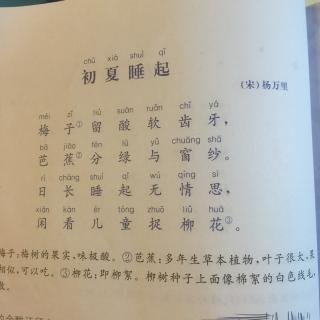 chū xià shuì qǐ
初夏睡起
(宋)杨万里
méi zǐ liú suān ruǎn chǐ yá
梅子①留酸软齿牙,
bā jiāo fēn lǜ yǔ chuāng shā
芭蕉②分绿与窗纱。
rì cháng shuì qǐ wú qíng sī
日长睡起无情思,
xián kàn ér tóng zhuō liǔ huā
闲看儿童捉柳花③。
梅子:梅树的果实,味极酸。②芭蕉:多年生草本植物,叶子很大,果
相似,可以吃。③柳花:即柳絮。柳树种子上面像棉絮的白色绒毛,